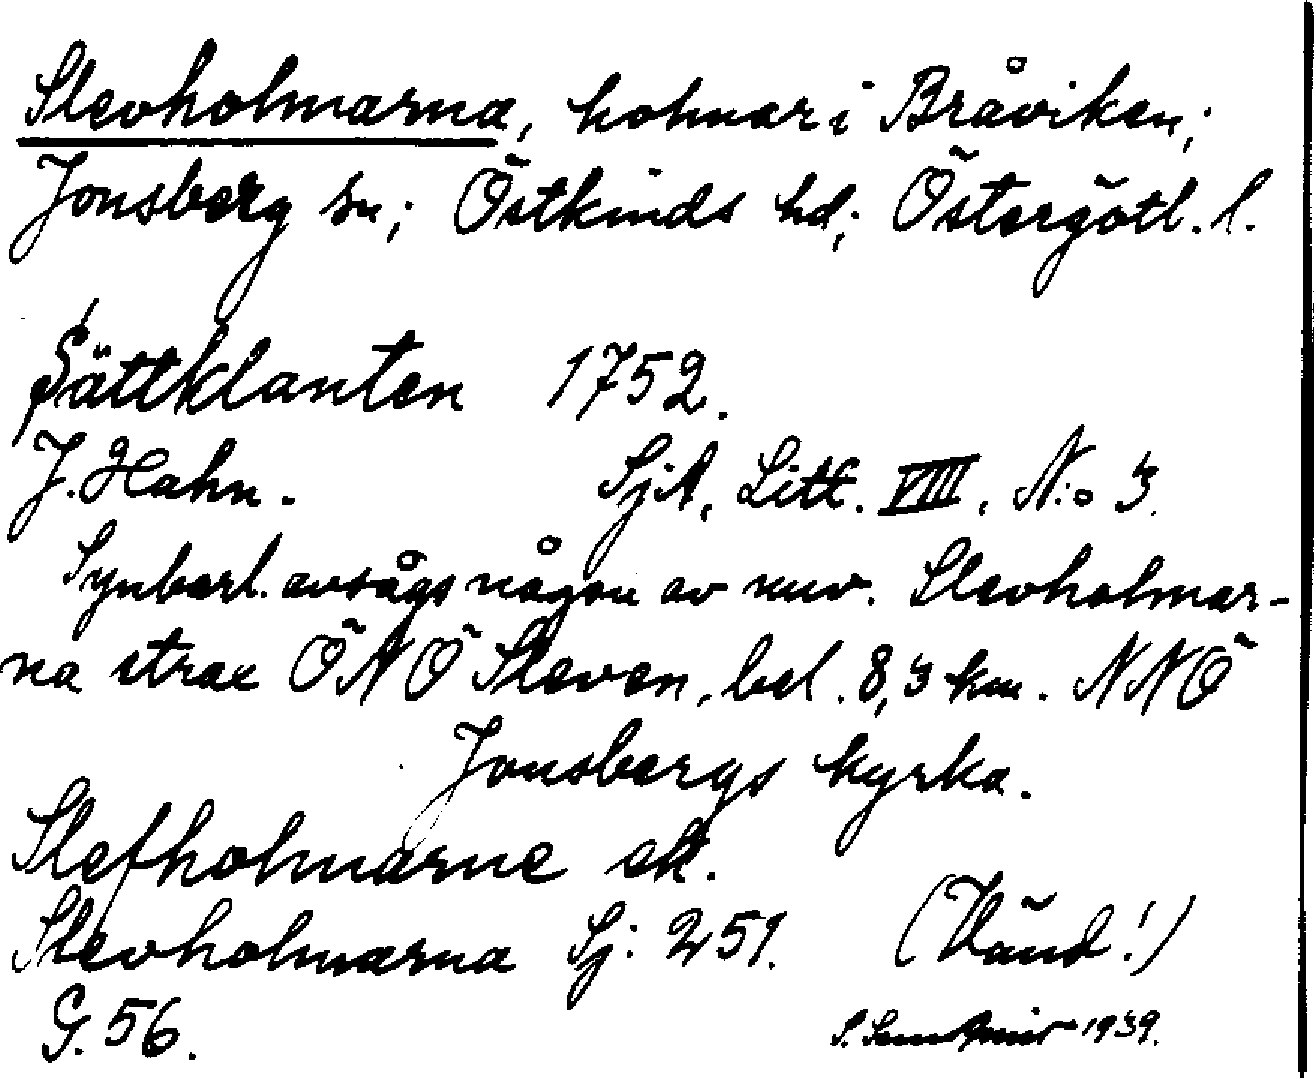 Slevholmarna, holmar i Bråviken;
Jonsberg sn; Östkinds hd; Östergötl. l.
Sättklanten 1752.
J. Hahn. SjA, Litt. VIII, N:o 3.
Synbarl. avsågs någon av nuv. Slevholmar-
na strax ÖNÖ Sleven, bel. 8,3 km. NNÖ
Jonsbergs kyrka.
Slefholmarne ek.
Slevholmarna Sj: 251. (Vänd!)
G. 56. S. 1939.